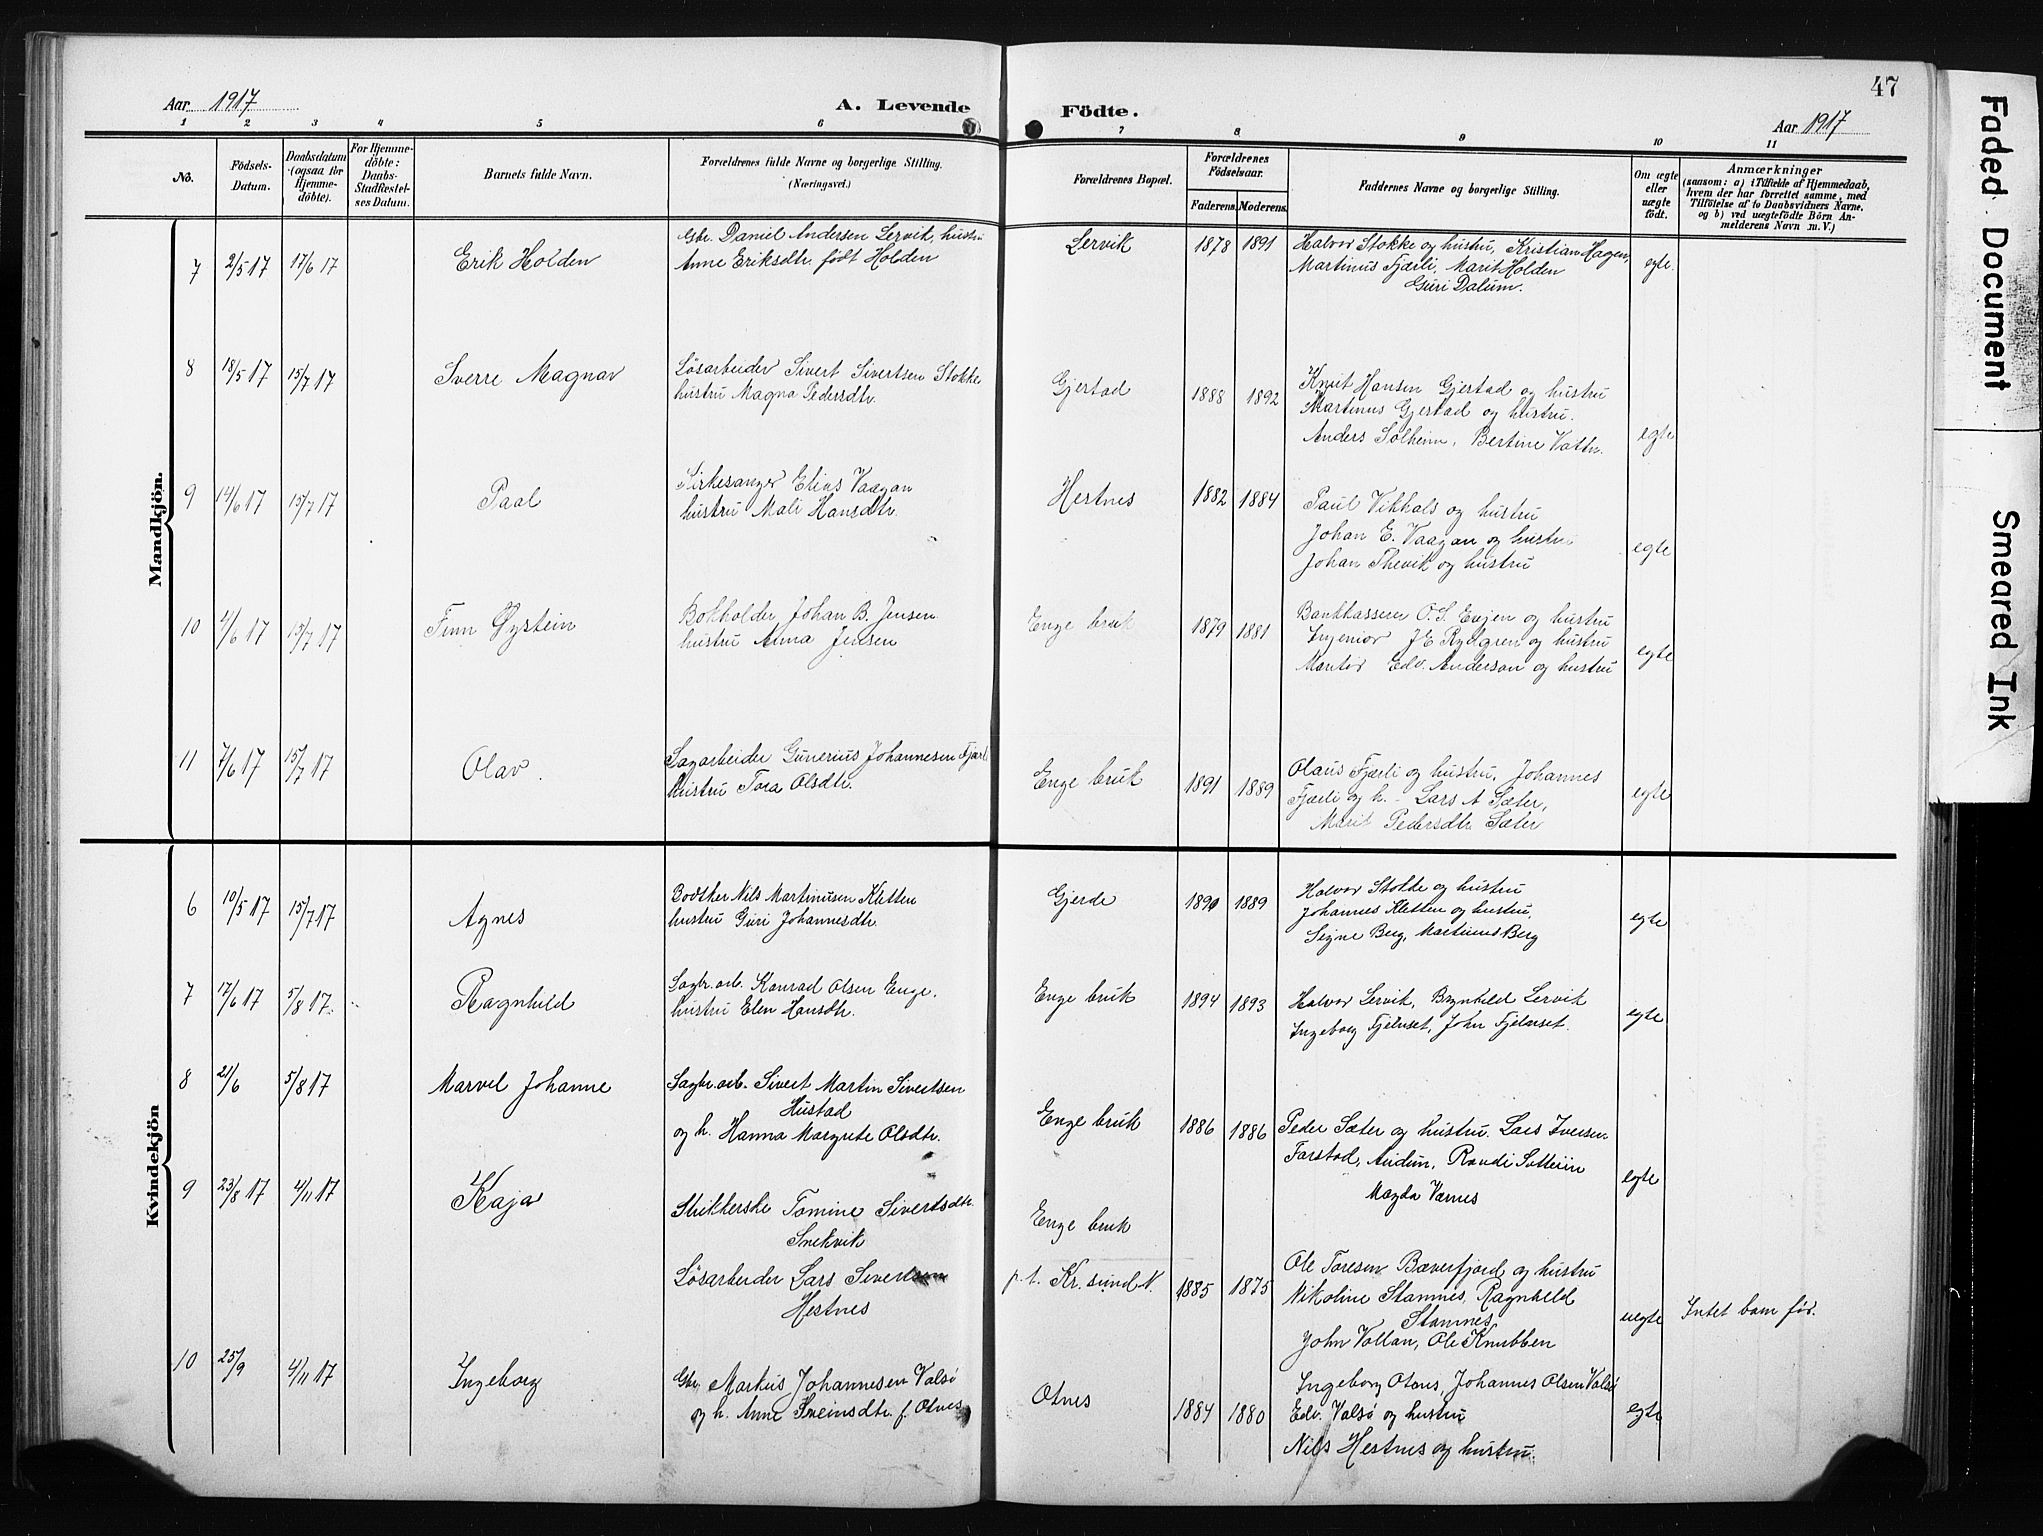 47
Aar 1917
A. Levende Födte.
Aar 1917
1 2 3 4 5 6 7 8 9 10 11
No.
Födsels-
Datum.
Daabsdatum
(ogsaa for
Hjemme-
döbte).
For Hjemme-
döbte:
Daabs-
Stadfæstel-
ses Datum.
Barnets fulde Navn.
Forældrenes fulde Navne og borgerlige Stilling.
(Næringsvei.)
Forældrenes Bopæl.
Forældrenes
Födselsaar.
Faderens. Moderens.
Faddernes Navne og borgerlige Stilling.
Om ægte
eller
uægte
födt.
Anmærkninger
(saasom: a) i Tilfælde af Hjemmedaab,
hvem der har forrettet samme, med
Tilföielse af to Daabsvidners Navne.
og b) ved uægtefödte Börn An-
melderens Navn m. V.)
Mandkjön.
7 2/5 17 17/6 17 Erik Holden
Gbr. Daniel Andersen Lervik, hustru
Anne Eriksdtr. født Holden
Lervik 1878 1891
Halvor Stokke og hustru, Kristian Hagen,
Martinus Fjærli, Marit Holden
Guri Dalum.
egte.
8 18/5 17 15/7 17 Sverre Magnar
Løsarbeider Sivert Sivertsen Stokke
hustru Magna Pedersdtr.
Gjerstad 1888 1892
Knut Hansen Gjerstad og hustru
Martinus Gjerstad og hustru.
Anders Solheim, Bertine Vattn.
egte
9 14/6 17 15/7 17 Paal
Kirkesanger Elias Vaagan
hustru Mali Hansdtr.
Hestnes 1882 1884
Paul Vikhals og hustru
Johan E. Vaagan og hustru
Johan Thevik og hustru
egte
10 4/6 17 15/7 17 Finn Øystein
Bokholder Johan B. Jensen
hustru Anna Jensen
Enge bruk 1879 1881
Bankkasserer O. S. Evjen og hustru
Ingeniør J E Rydgren og hustru
Montør Edv. Anderson og hustru
egte
11 7/6 17 15/7 17 Olav.
Sagarbeider Gunerius Johannesen Fjærli
hustru Tora Olsdtr.
Enge bruk 1891 1889
Olaus Fjærli og hustru, Johannes
Fjærli og h. - Lars A Sæter,
Marit Pedersdtr Sæter
egte
Kvindekjön
6 10/5 17 15/7 17 Agnes
Bødtker Nils Martinusen Kletten
hustru Guri Johannesdtr.
Gjerde 1890 1889
Halvor Stokke og hustru
Johannes Kletten og hustru,
Signe Berg, Martinus Berg
egte
7 17/6 17 5/8 17 Ragnhild
Sagbr. arb. Konrad Olsen Enge.
hustru Elen Hansdtr.
Enge bruk 1894 1893
Halvor Lervik, Brynhild Lervik
Ingeborg Fjelnset, John Fjelnset.
egte
8 21/6 5/8 17 Marvel Johanne
Sagbr. arb. Sivert Martin Sivertsen
Hustad
og h. Hanna Margrete Olsdtr.
Enge bruk 1886 1886
Peder Sæter og hustru. Lars Iversen
Farstad, Audun, Randi
Magda Værnes
egte
9 23/8 17 4/11 17 Kaja
Strikkerske Tomine Sivertsdtr.
Snekvik
Enge bruk
Løsarbeider Lars Sivertsen
Hestnes
p. t. Kr. sund N. 1885 1875
Ole Toresen Bæverfjord og hustru
Nikoline Stamnes, Ragnhild
Stamnes,
John Vollan, Ole Knubben
uegte
Intet barn før.
10 25/9 4/11 17 Ingeborg
Gbr. Markus Johannesen Valsø
og h. Anne Sveinsdtr. f. Otnes
Otnes 1884 1880
Ingeborg Otnes, Johannes Olsen Valsø
Edv. Valsø og hustru
Nils Hestnes og hustru.
egte
Faded Document
Smeared Ink